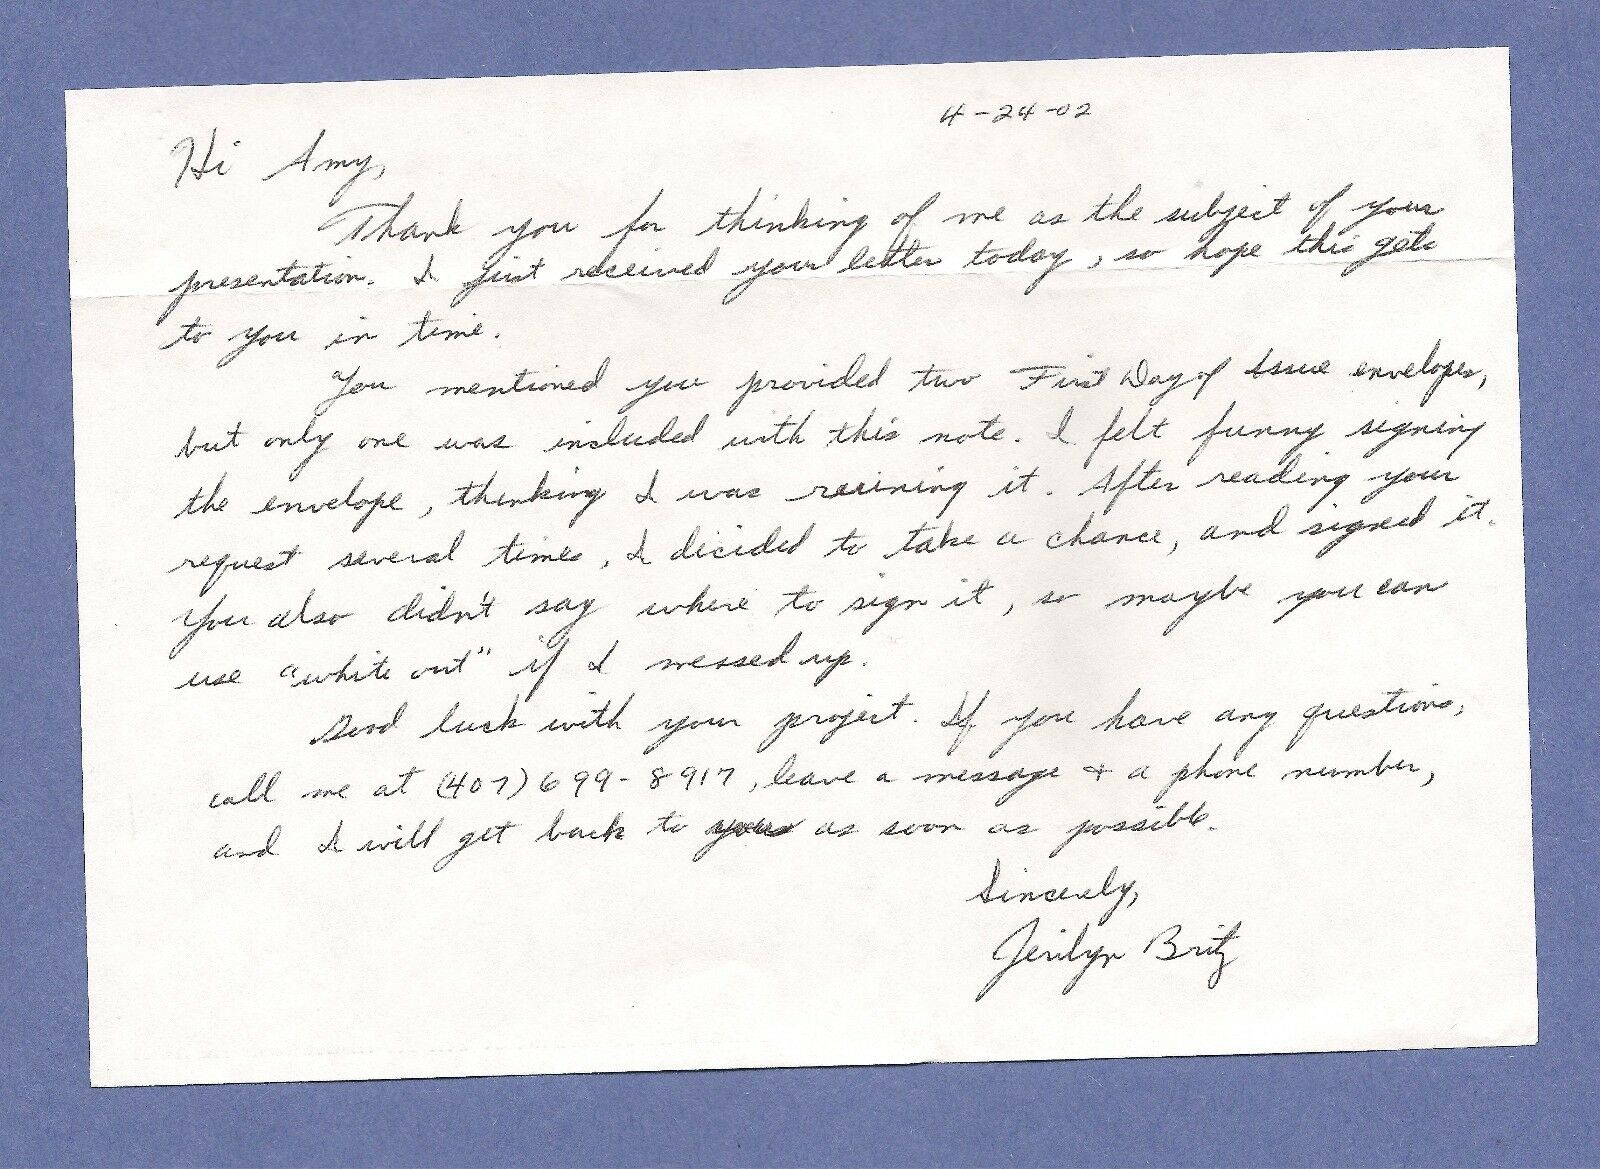 4-24-02
Hi Amy,
Thank you for thinking of me as the subject of your
presentation. I just received your letter today, so hope this gets
to you in time.
You mentioned you provided two First Day of Issue envelopes,
but only one was included with this note. I felt funny signing
the envelope, thinking I was ruining it. After reading your
request several times, I decided to take a chance, and signed it.
You also didn't say where to sign it, so maybe you can
use "white out" if I messed up.
Good luck with your project. If you have any questions,
call me at (407) 699-8917, leave a message & a phone number,
and I will get back to you as soon as possible.
Sincerely,
Jerilyn Britz